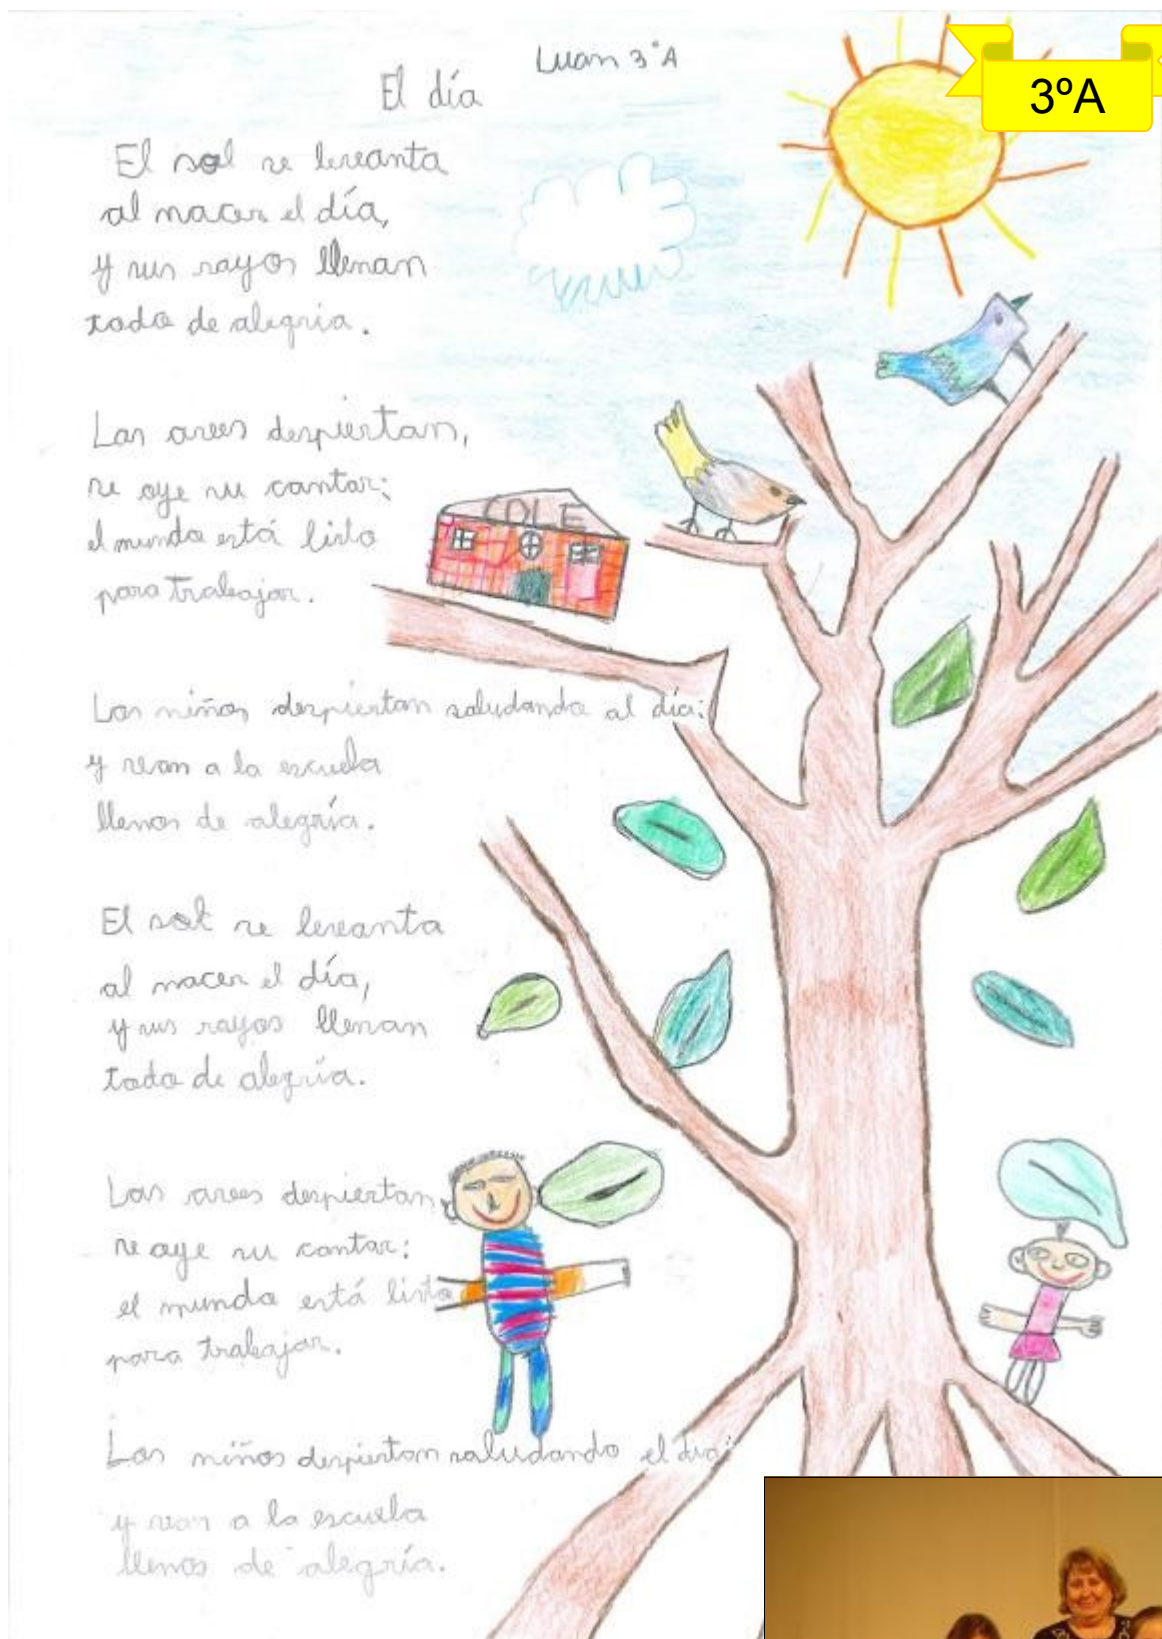 Luan 3ºA
3ºA
El día
El sol se levanta
al nacer el día,
y sus rayos llenan
todo de alegría.
Las aves despiertan,
se oye su cantar;
el mundo está listo
para trabajar.
COLE
Los niños despiertan saludando al día;
y van a la escuela
llenos de alegría.
El sol se levanta
al nacer el día,
y sus rayos llenan
todo de alegría.
Las aves despiertan
se oye su cantar:
el mundo está listo
para trabajar.
Los niños despiertan saludando el día;
y van a la escuela
llenos de alegría.